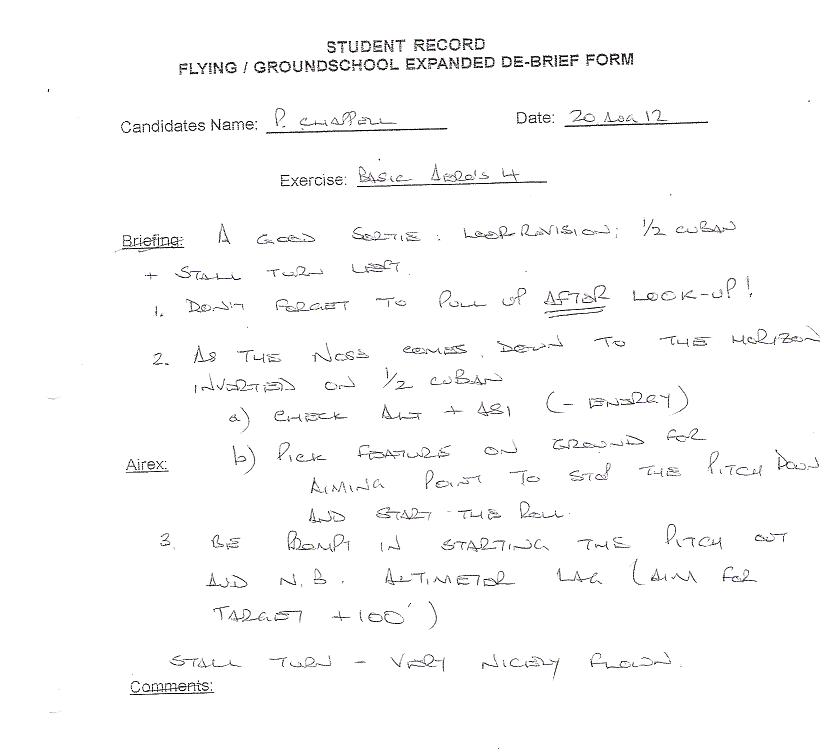 STUDENT RECORD
FLYING / GROUNDSCHOOL EXPANDED DE-BRIEF FORM
Candidates Name: P. CHAPPELL Date: 20 AUG 12
Exercise: BASIC AERO'S 4
Briefing: A GOOD SORTIE: LOOP REVISION; 1/2 CUBAN
+ STALL TURN LEFT.
1. DON'T FORGET TO PULL UP AFTER LOOK-UP!
2. AS THE NOSE COMES DOWN TO THE HORIZON
INVERTED ON 1/2 CUBAN
a) CHECK ALT + ASI (- ENERGY)
b) PICK FEATURE ON GROUND FOR
Airex:
AIMING POINT TO STOP THE PITCH DOWN
AND START THE ROLL.
3. BE PROMPT IN STARTING THE PITCH OUT
AND N.B. ALTIMETER LAG (AIM FOR
TARGET +100')
STALL TURN - VERY NICELY FLOWN.
Comments: